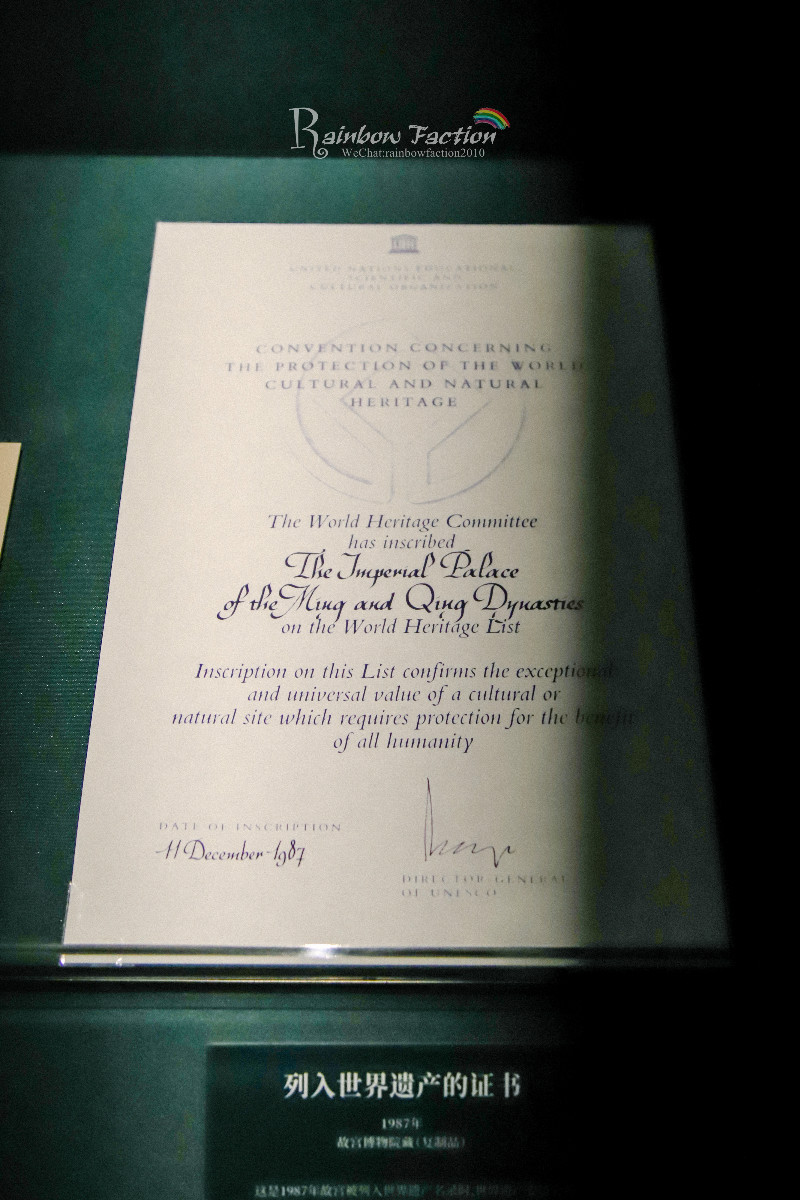 Rainbow Faction
WeChat:rainbowfaction2010
UNITED NATIONS EDUCATIONAL
SCIENTIFIC AND
CULTURAL ORGANIZATION
CONVENTION CONCERNING
THE PROTECTION OF THE WORLD
CULTURAL AND NATURAL
HERITAGE
The World Heritage Committee
has inscribed
The Imperial Palace
of the Ming and Qing Dynasties
on the World Heritage List
Inscription on this List confirms the exceptional
and universal value of a cultural or
natural site which requires protection for the benefit
of all humanity
DATE OF INSCRIPTION
11 December 1987
DIRECTOR-GENERAL
OF UNESCO
列入世界遗产的证书
1987年
故宫博物院藏(复制品)
这是1987年故宫被列入世界遗产名录时,世界遗产